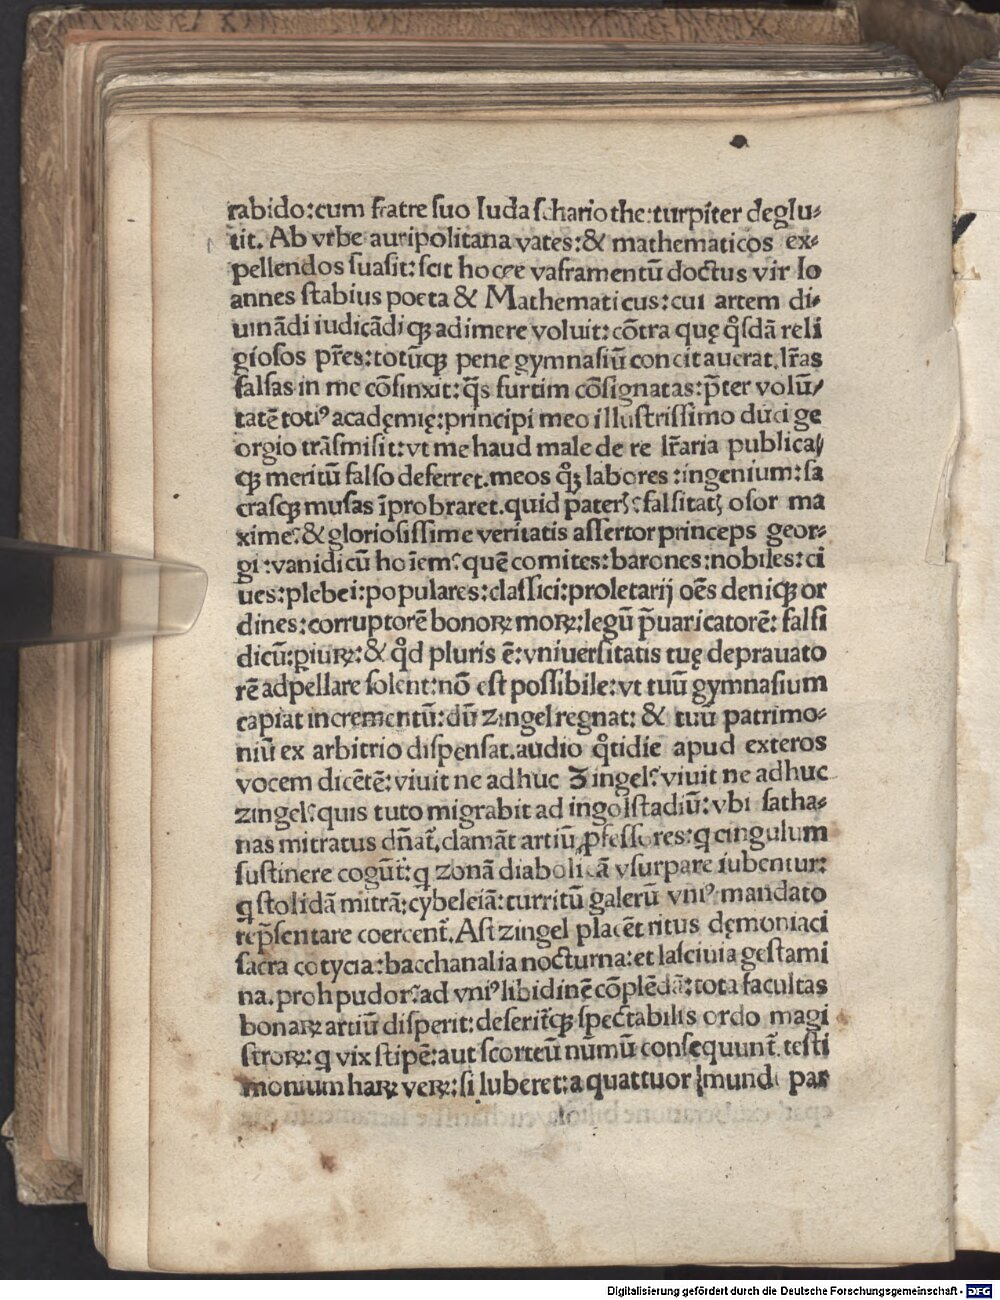 rabido:cum fratre suo Iuda schariothe:turpiter deglu⸗
tit. Ab vrbe auripolitana vates:& mathematicos ex⸗
pellendos suasit:scit hocce vaframentũ doctus vir Io
annes stabius poeta & Mathematicus:cui artem di⸗
uinãdi iudicãdiqꝫ adimere voluit:cõtra quę q̃sdã reli
giosos pr̃es:totũqꝫ pene gymnasiũ concitauerat.lr̃as
falsas in me cõfinxit:q̃s furtim cõsignatas:p̃ter volũ/
tatẽ totiꝰ academię:principi meo illustrissimo duci ge
orgio trãsmisit:vt me haud male de re lr̃aria publica
qꝫ meritũ falso deferret.meos qꝫ labores:ingenium:sa
crasqꝫ musas ĩprobraret.quid pateris falsitatis osor ma
xime:& gloriosissime veritatis assertor princeps geor⸗
gi:vanidicũ hoĩem? quẽ comites:barones:nobiles:ci
ues:plebei:populares:classici:proletarij oẽs deniqꝫ or
dines:corruptorẽ bonoꝝ moꝝ:legũ p̃uaricatorẽ:falsi
dicũ:ꝑiuꝝ:& qd̃ pluris ẽ:vniuersitatis tuę deprauato
rẽ adpellare solent:nõ est possibile:vt tuũ gymnasium
capiat incrementũ:dũ zingel regnat:& tuũ patrimo⸗
niũ ex arbitrio dispensat.audio q̃tidie apud exteros
vocem dicẽtẽ:viuit ne adhuc Zingel?viuit ne adhuc
zingel?quis tuto migrabit ad ingolstadiũ:vbi satha⸗
nas mitratus dñat̃.clamãt artiũ ꝓfessores:q cingulum
sustinere cogũt̃:q zonã diabolicã vsurpare iubentur:
q stolidã mitrã:cybeleiã:turritũ galerũ vniꝰ mandato
rep̃sentare coercent̃.Ast zingel placẽt ritus dęmoniaci
sacra cotycia:bacchanalia nocturna:et lasciuia gestami
na.proh pudor?ad vniꝰ libidinẽ cõplẽdã:tota facultas
bonaꝝ artiũ disperit:deserit̃qꝫ spectabilis ordo magi
stroꝝ:q vix stipẽ:aut scorteũ nũmũ consequunt̃.testi
monium haꝝ veꝝ:si luberet:a quattuor mundi par
Digitalisierung gefördert durch die Deutsche Forschungsgemeinschaft - DFG